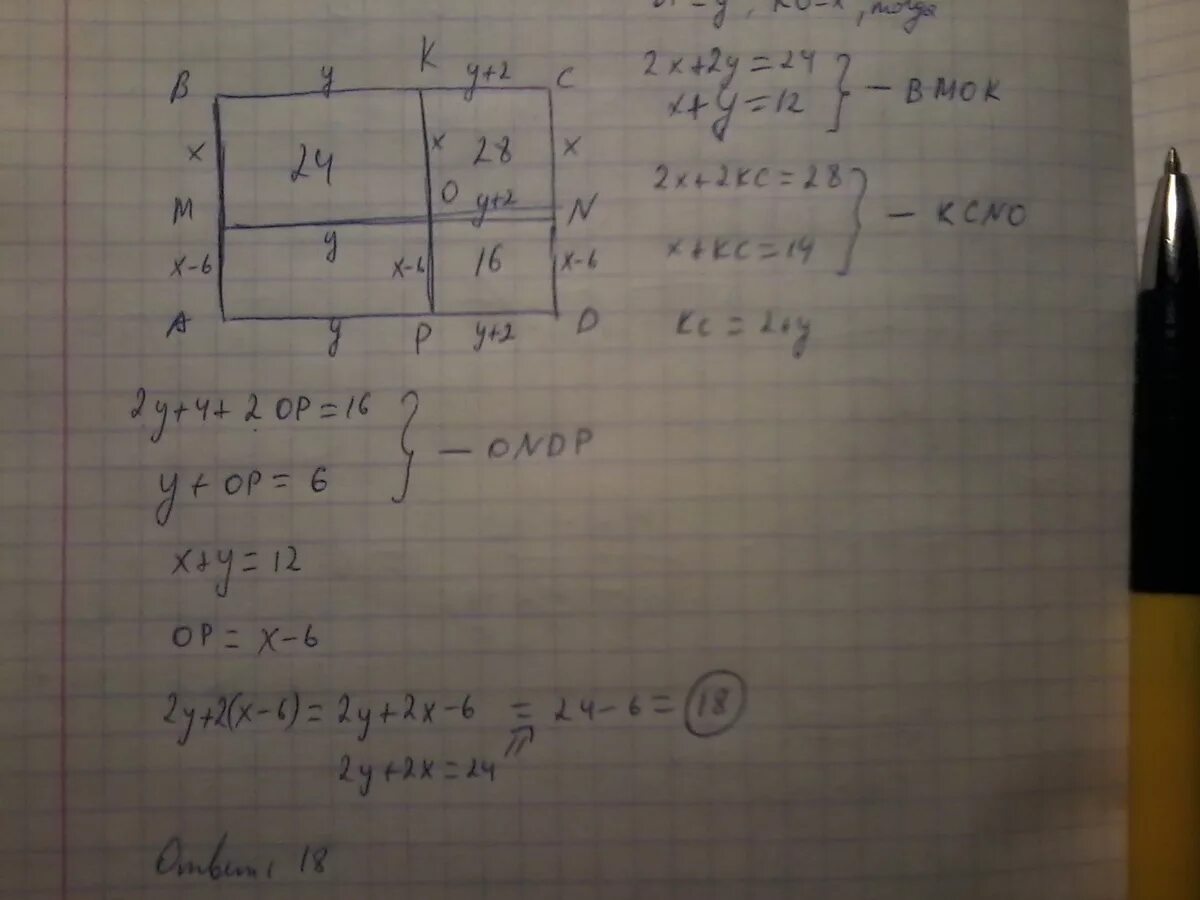 , тогда
B y K y+2 C
2x+2y=24
x+y=12 } — BMOK
x 24 x 28 x
2x+2KC=28
x+KC=14 } — KCNO
M O y+2 N
y
x-6 x-6 16 x-6
A y P y+2 D
KC=2+y
2y+4+2.OP=16
y+OP=6 } — ONDP
x+y=12
OP=x-6
2y+2(x-6)=2y+2x-6 = 24-6= 18
2y+2x=24
Ответ: 18